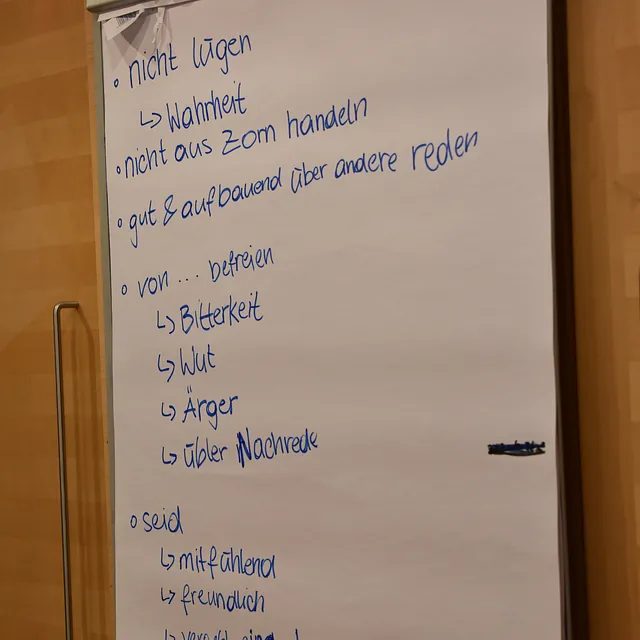 ◦ nicht lügen
↳ Wahrheit
◦ nicht aus Zorn handeln
◦ gut & aufbauend über andere reden
◦ von ... befreien
↳ Bitterkeit
↳ Wut
↳ Ärger
↳ übler Nachrede
◦ seid
↳ mitfühlend
↳ freundlich